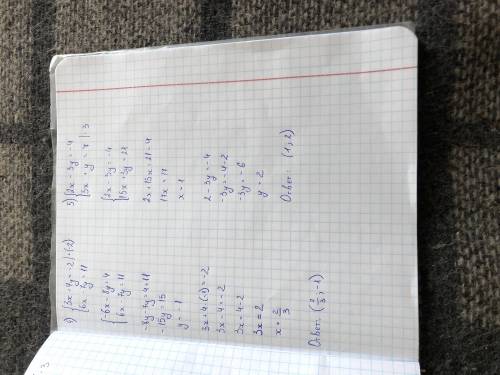 1) {3x + 4y = -2 | · (-2)
{6x - 7y = 11
{-6x - 8y = 4
{6x - 7y = 11
-8y - 7y = 4 + 11
-15y = 15
y = -1
3x + 4 · (-1) = -2
3x - 4 = -2
3x = 4 - 2
3x = 2
x = 2/3
Ответ: (2/3; -1)
3) {2x - 3y = -4
{5x + y = 7 | · 3
{2x - 3y = -4
{15x + 3y = 21
2x + 15x = 21 - 4
17x = 17
x = 1
2 - 3y = -4
-3y = -4 - 2
-3y = -6
y = 2
Ответ: (1; 2)